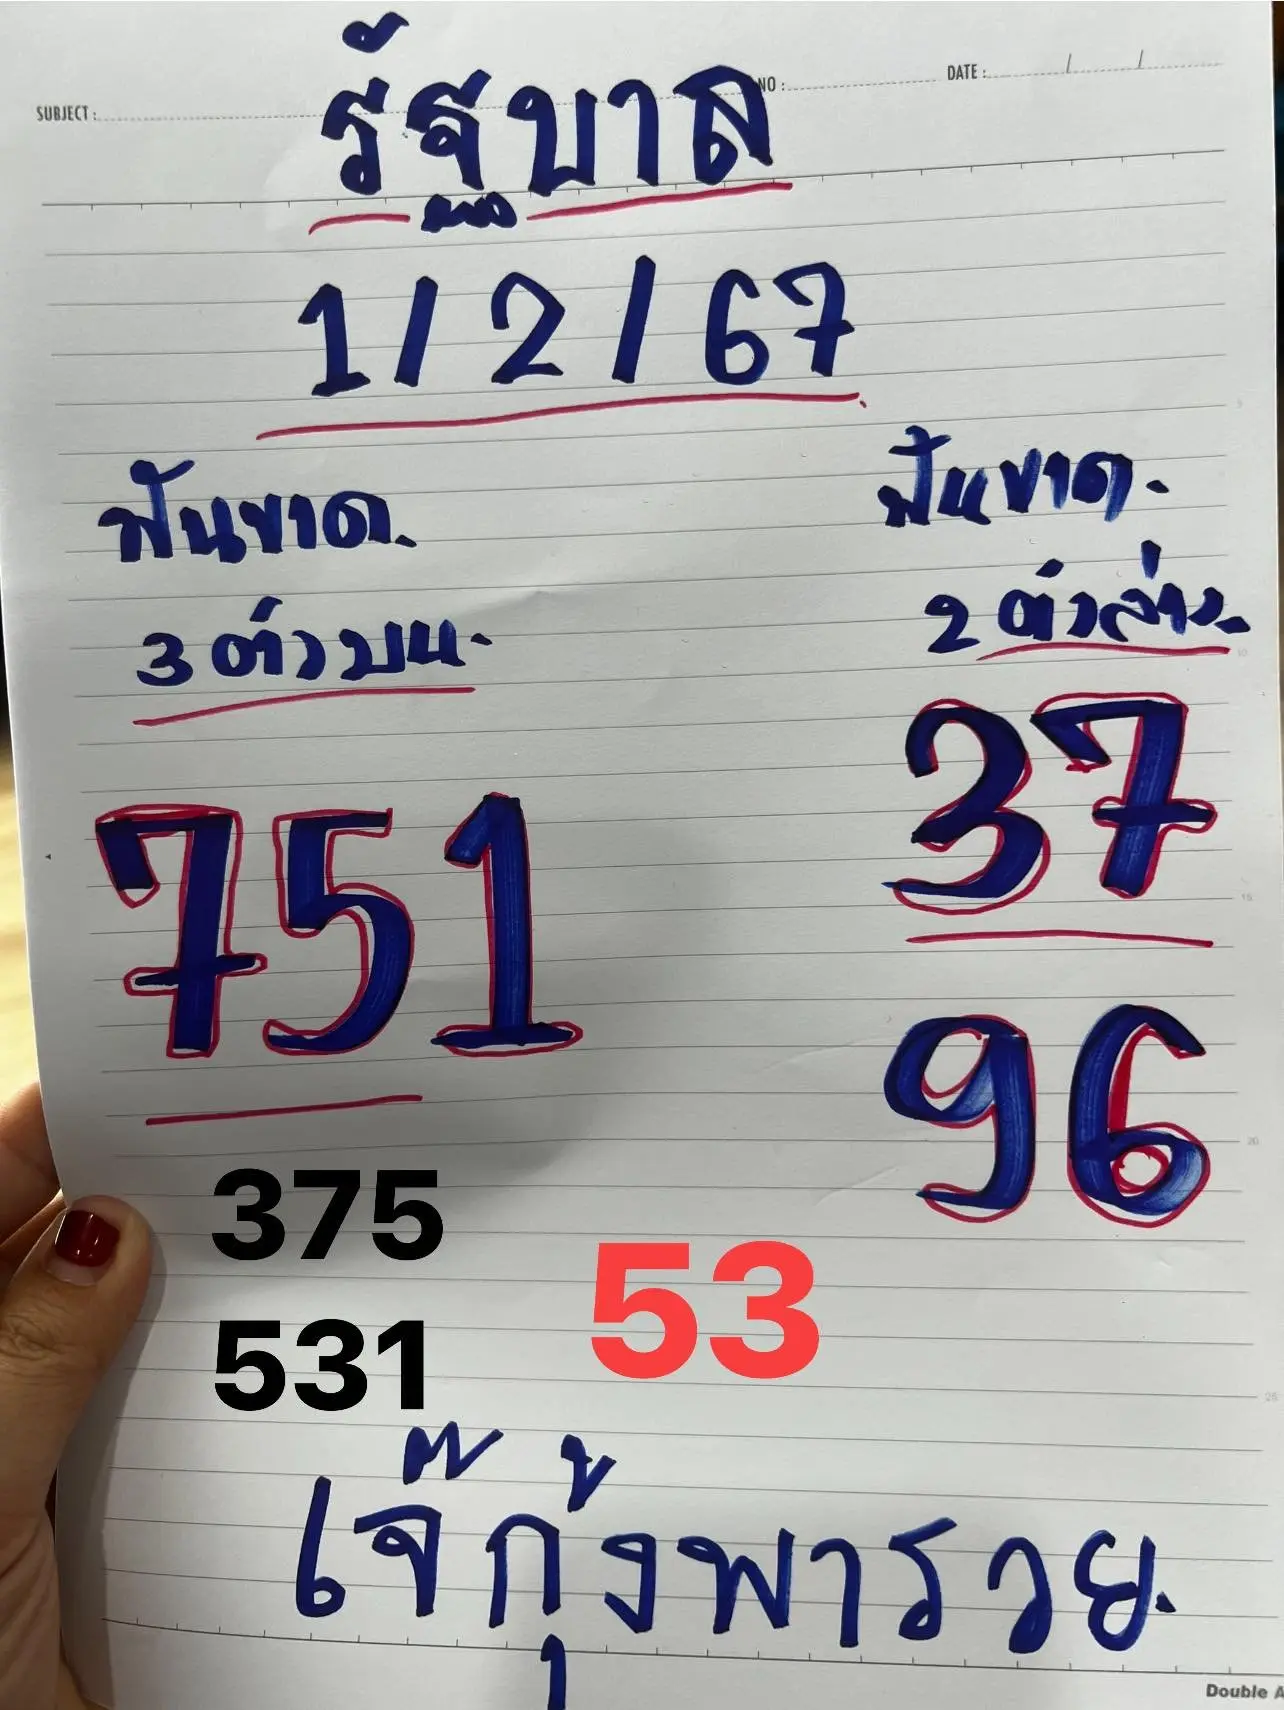 SUBJECT :
NO :
DATE : / /
รัฐบาล
1/2/67
ฟันขาด.
3 ตัวบน.
751
ฟันขาด.
2 ตัวล่าง.
37
96
375
531
53
เจ๊กุ้งพารวย.
Double A